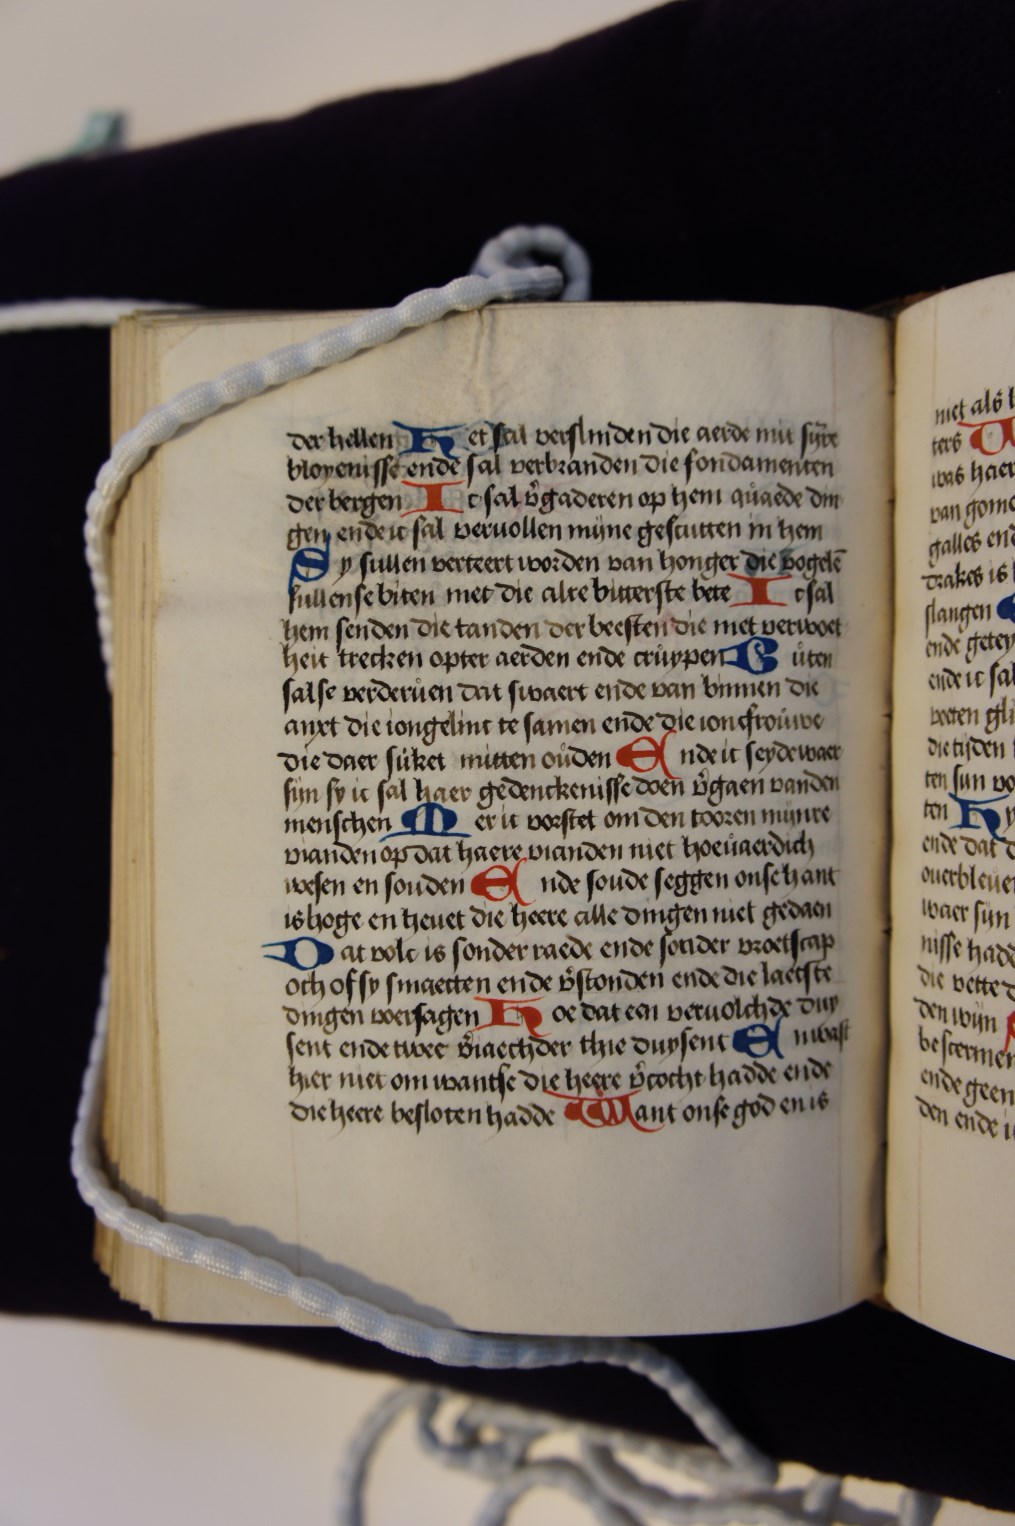 der hellen Het sal verslinden die aerde mit sijnre
bloyenisse ende sal verbranden die fondamenten
der bergen Ic sal v̄gaderen op hem quaede din
gen ende ic sal vervollen mijne gescutten in hem
Sy sullen verteert worden van honger die vogelē
sullense biten met die alre bitterste bete Ic sal
hem senden die tanden der beesten die met verwoet
heit trecken opter aerden ende cruypen Buten
salse verderuen dat swaert ende van binnen die
anxt die iongelinc te samen ende die ioncfrouwe
die daer suket mitten ouden Ende ic seyde waer
sijn sy ic sal haer gedenckenisse doen v̄gaen vanden
menschen Mer ic vorstet om den tooren mijnre
vianden op dat haere vianden niet hoeuaerdich
wesen en souden Ende soude seggen onse hant
is hoge en heuet die heere alle dingen niet gedaen
Dat volc is sonder raede ende sonder vroetscap
och of sy smaecten ende v̄stonden ende die laetste
dingen voersagen Hoe dat een veruolchde duy
sent ende twee v̄iaechder thie duysent En wast
hier niet om wantse die heere v̄cocht hadde ende
die heere besloten hadde Want onse god en is
niet als
ters
was haer
van gomo
galles en
drakes is
slangen
ende getey
ende ic sal
die tijden
ten sijn
ten Hy
ende dat
ouerbleue
waer sijn
nisse had
die vette
den wijn
bescermen
ende geen
den ende